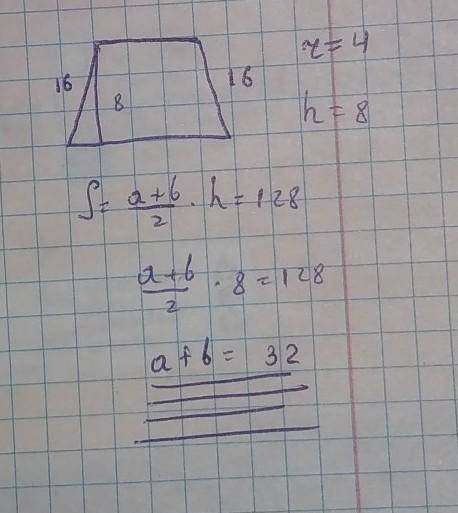 16 8 16
r = 4
h = 8
S = a+b/2 · h = 128
a+b/2 · 8 = 128
a + b = 32